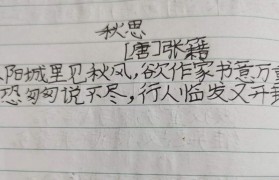 秋思
[唐]张籍
阳城里见秋风,欲作家书意万重
恐匆匆说不尽,行人临发又开封